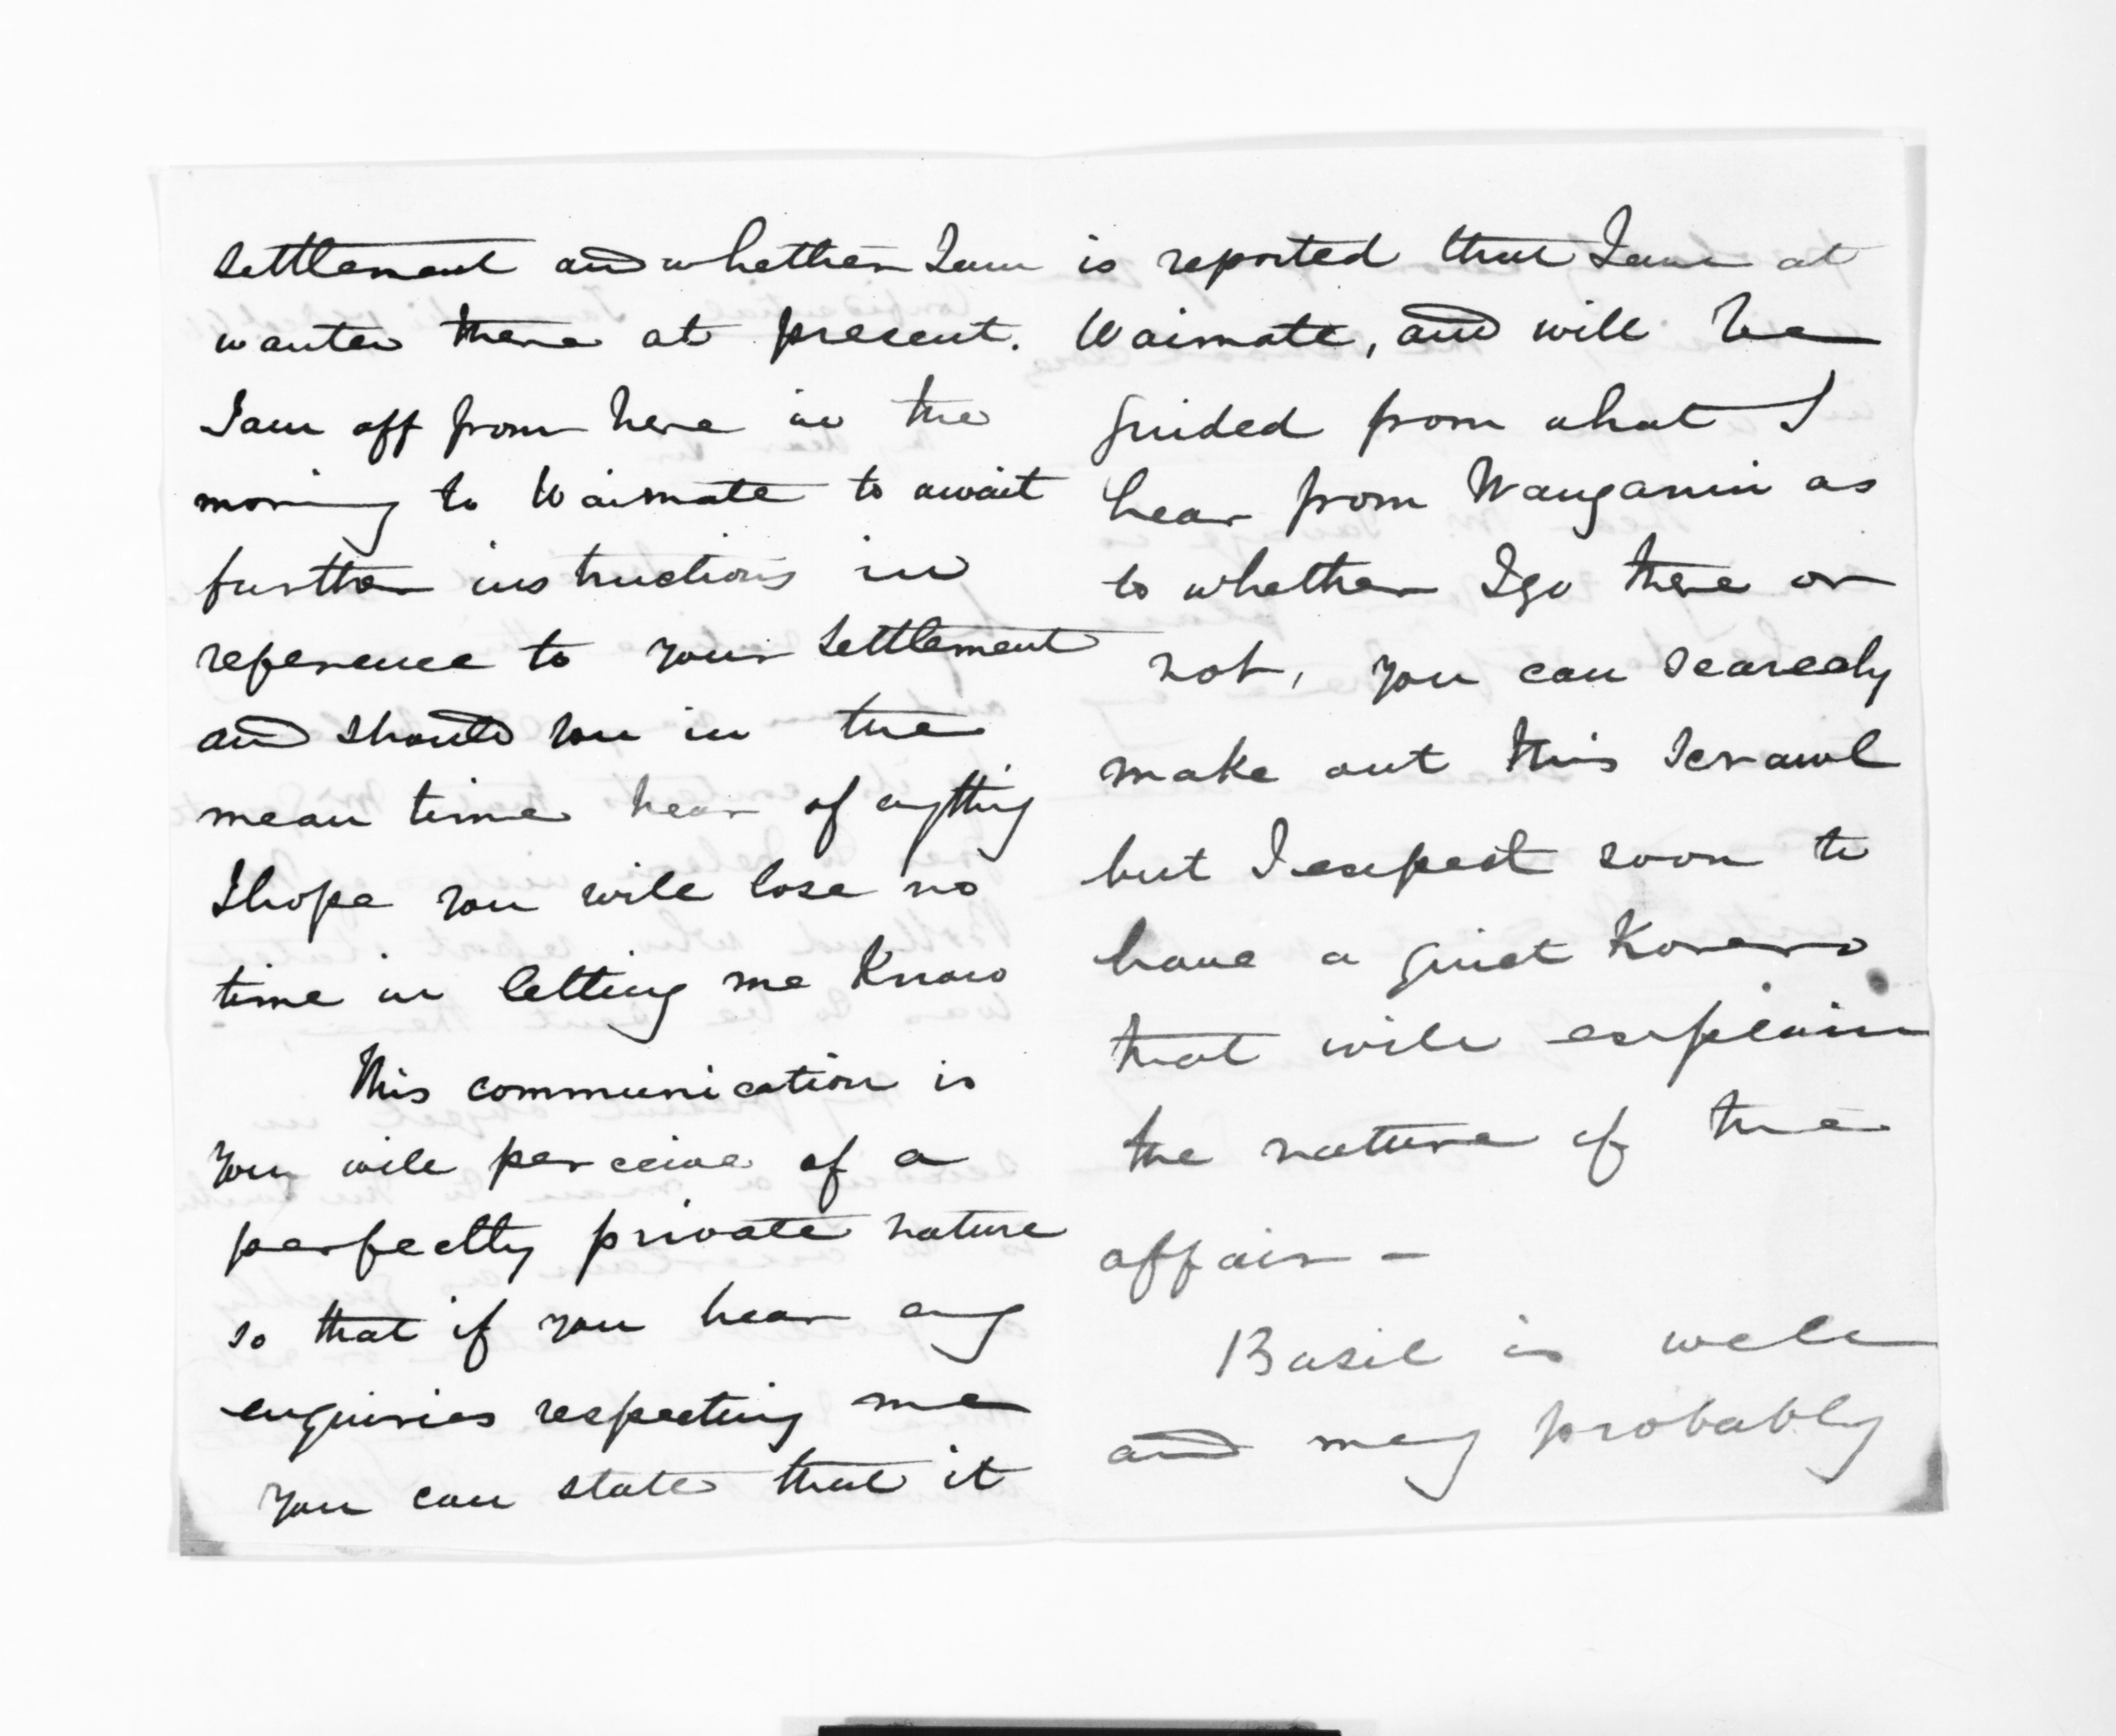 settlement and whether I am
wanted there at present.
I am off from here in the
morning to Waimate to await
further instructions in
reference to your settlement
and should you in the
mean time hear of anything
I hope you will lose no
time in letting me know
This communication is
you will perceive of a
perfectly private nature
so that if you hear any
enquiries respecting me
you can state that it
is reported that I am at
Waimate, and will be
guided from what I
hear from Wanganui as
to whether I go there or
not, you can scarcely
make out this scrawl
but I expect soon to
have a quiet Korero
that will explain
the nature of the
affair —
Basil is well
and may probably